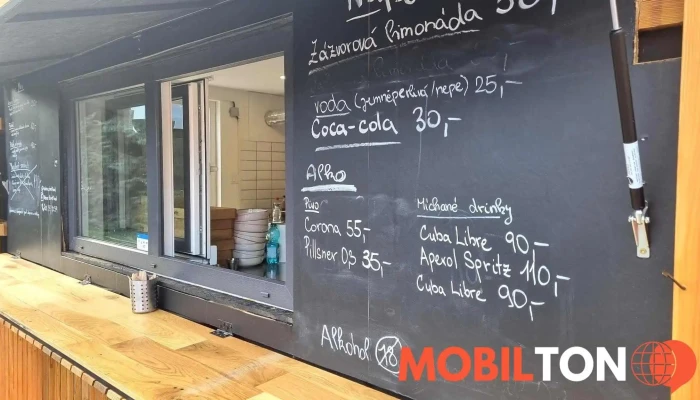 Zázvorová limonáda 50,-
voda (jemněperlivá/nepe) 25,-
Coca-cola 30,-
Alko
Pivo
Corona 55,-
Pillsner 0,3 35,-
Míchané drinky
Cuba Libre 90,-
Aperol Spritz 110,-
Cuba Libre 90,-
Alkohol 18
MOBILTON